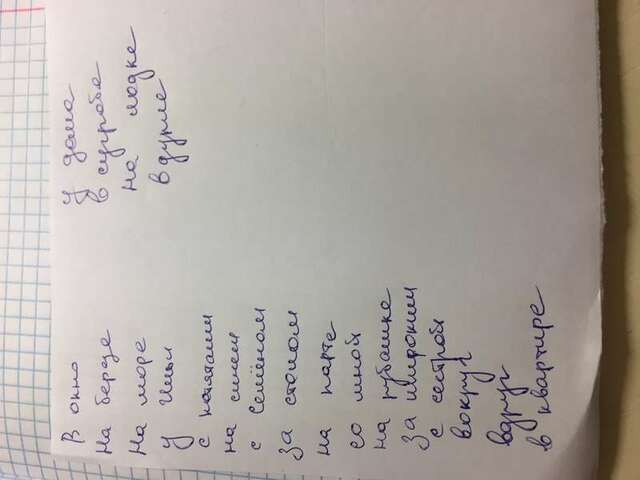 В окно
На березе
На море
у Ильи
с котятами
на синем
с Семёном
за столом
на парте
со мной
на рубашке
за широким
с сестрой
вокруг
вдруг
в квартире
у дома
в сугробе
на лодке
в дупле